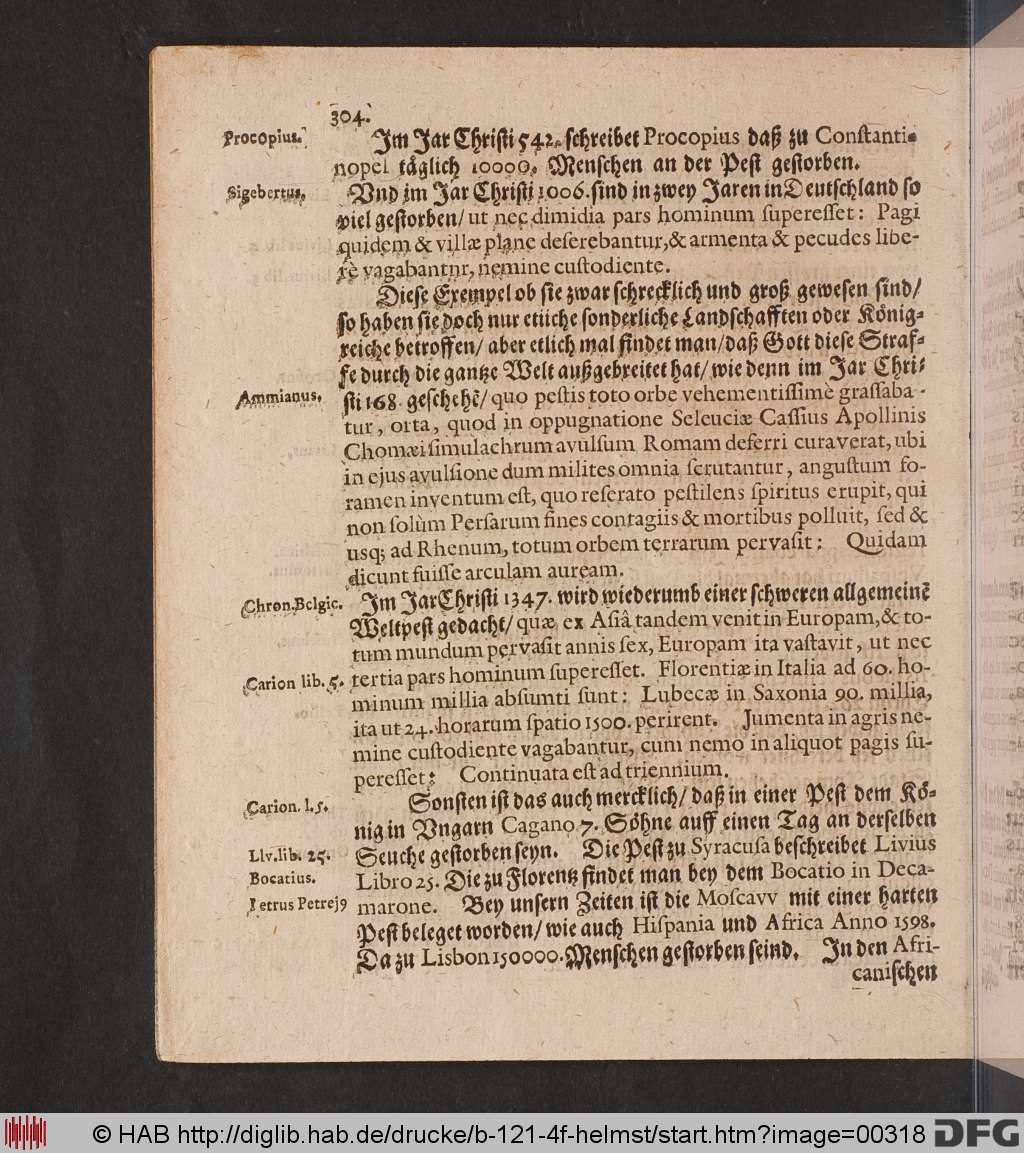 304.
Procopius.
Im Jar Christi 542. schreibet Procopius daß zu Constanti-
nopel täglich 10000. Menschen an der Pest gestorben.
Sigebertus.
Vnd im Jar Christi 1006. sind in zwey Jaren in Deutschland so
viel gestorben/ ut nec dimidia pars hominum superesset: Pagi
quidem & villæ plane deserebantur, & armenta & pecudes libe-
rè vagabantnr, nemine custodiente.
Diese Exempel ob sie zwar schrecklich und groß gewesen sind/
so haben sie doch nur etliche sonderliche Landschafften oder König-
reiche betroffen/ aber etlich mal findet man/ daß Gott diese Straf-
fe durch die gantze Welt außgebreitet hat/ wie denn im Jar Chri-
Ammianus.
sti 168. geschehẽ/ quo pestis toto orbe vehementissimè grassaba-
tur, orta, quod in oppugnatione Seleuciæ Cassius Apollinis
Chomæi simulachrum avulsum Romam deferri curaverat, ubi
in ejus avulsione dum milites omnia scrutantur, angustum fo-
ramen inventum est, quo reserato pestilens spiritus erupit, qui
non solùm Persarum fines contagiis & mortibus polluit, sed &
usq; ad Rhenum, totum orbem terrarum pervasit: Quidam
dicunt fuisse arculam auream.
Chron. Belgic.
Im Jar Christi 1347. wird wiederumb einer schweren allgemeinẽ
Weltpest gedacht/ quæ ex Asiâ tandem venit in Europam, & to-
tum mundum pervasit annis sex, Europam ita vastavit, ut nec
Carion lib. 5.
tertia pars hominum superesset. Florentiæ in Italia ad 60. ho-
minum millia absumti sunt: Lubecæ in Saxonia 90. millia,
ita ut 24. horarum spatio 1500. perirent. Jumenta in agris ne-
mine custodiente vagabantur, cum nemo in aliquot pagis su-
peresset: Continuata est ad triennium.
Carion. l. 5.
Sonsten ist das auch mercklich/ daß in einer Pest dem Kö-
nig in Vngarn Cagano 7. Söhne auff einen Tag an derselben
Liv. lib. 25.
Seuche gestorben seyn. Die Pest zu Syracusa beschreibet Livius
Bocatius.
Libro 25. Die zu Florentz findet man bey dem Bocatio in Deca-
Petrus Petrej9
marone. Bey unsern Zeiten ist die Moscavv mit einer harten
Pest beleget worden/ wie auch Hispania und Africa Anno 1598.
Da zu Lisbon 150000. Menschen gestorben seind. In den Afri-
canischen
© HAB http://diglib.hab.de/drucke/b-121-4f-helmst/start.htm?image=00318 DFG